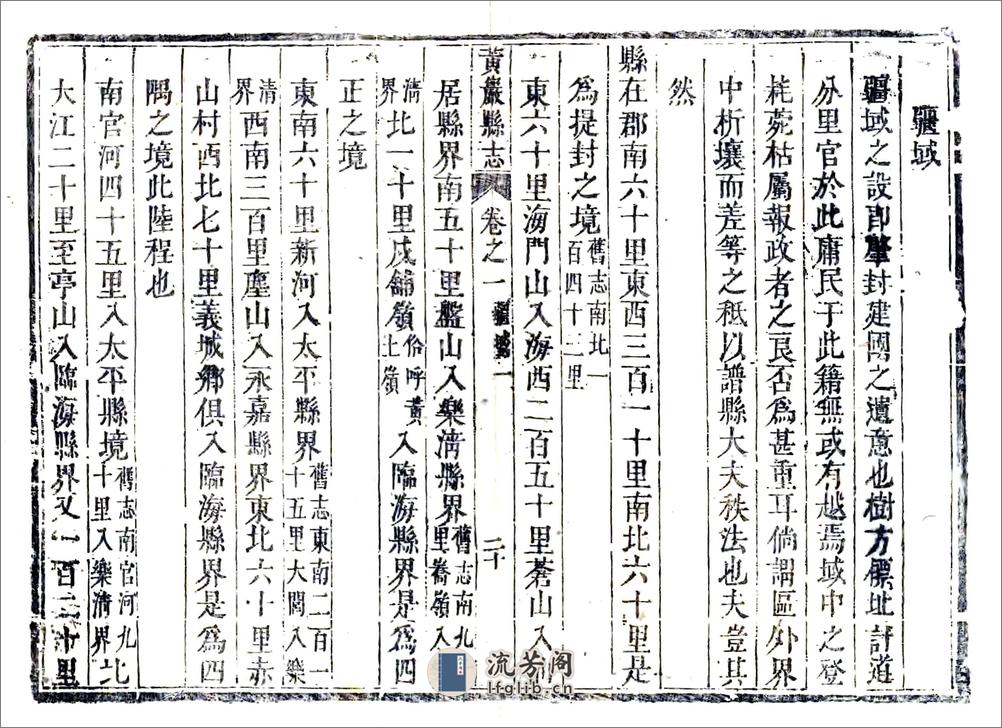 疆域
疆域之設即肇封建國之遺意也樹方標址計道
分里官於此庸民于此籍無或有越焉域中之登
耗菀枯屬報政者之良否為甚重耳倘謂區外界
中析壤而差等之秪以譜縣大夫秩法也夫豈其
然
縣在郡南六十里東西三百一十里南北六十里是
為提封之境舊志南北一百四十二里
東六十里海門山入海西二百五十里蒼山入仙
黃巖縣志 卷之一 疆域 二十
居縣界南五十里盤山入樂清縣界舊志南九里嶠嶺入
清界北一十里戍舖嶺俗呼黃土嶺入臨海縣界是為四
正之境
東南六十里新河入太平縣界舊志東南二百一十五里大閭入樂
清界西南三百里塵山入永嘉縣界東北六十里赤
山村西北七十里義城鄉俱入臨海縣界是為四
隅之境此陸程也
南官河四十五里入太平縣境舊志南官河九十里入樂清界北
大江二十里至亭山入臨海縣界又一百二十里
流芳阁
lfglib.cn